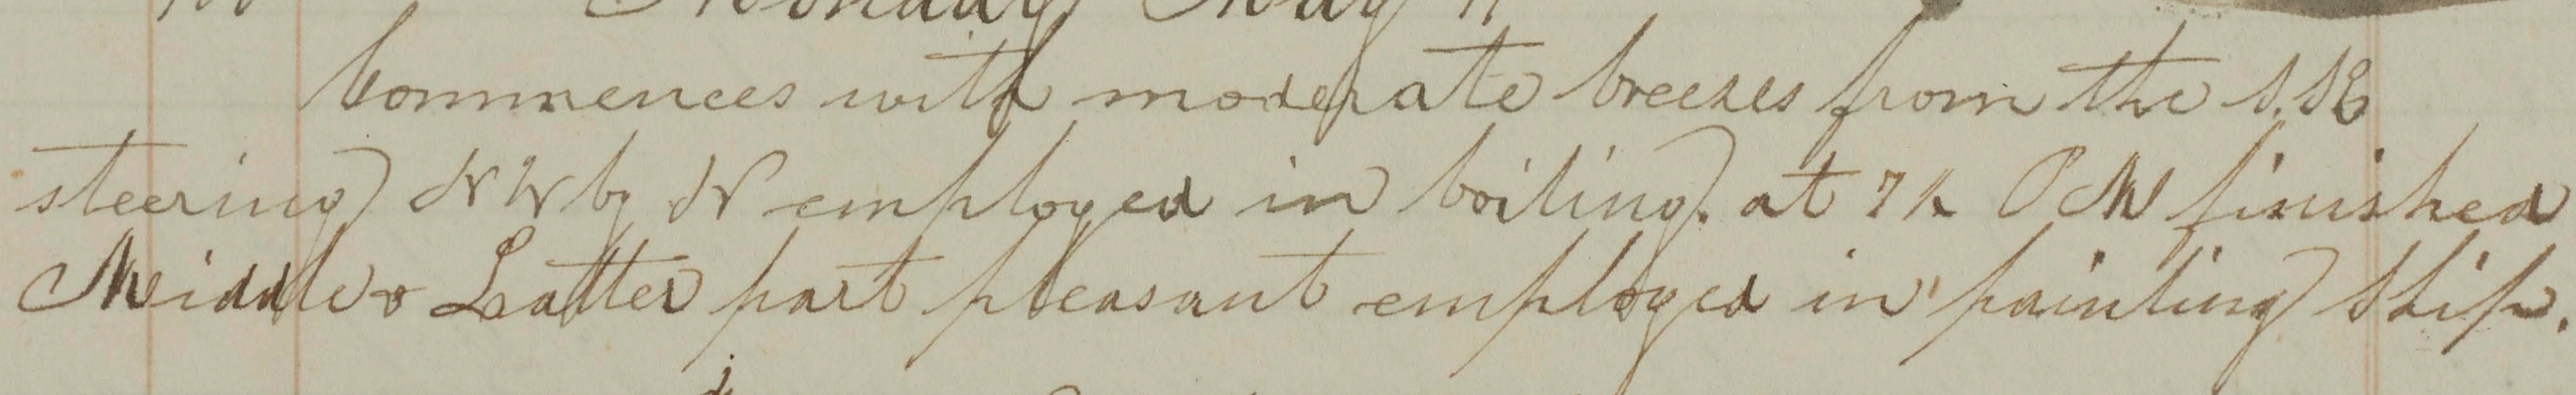 Monday May 11
Commences with moderate breezes from the S.SE
steering NW by N employed in boiling. at 7 h P M finished
Middle & Latter part pleasant employed in painting Ship.